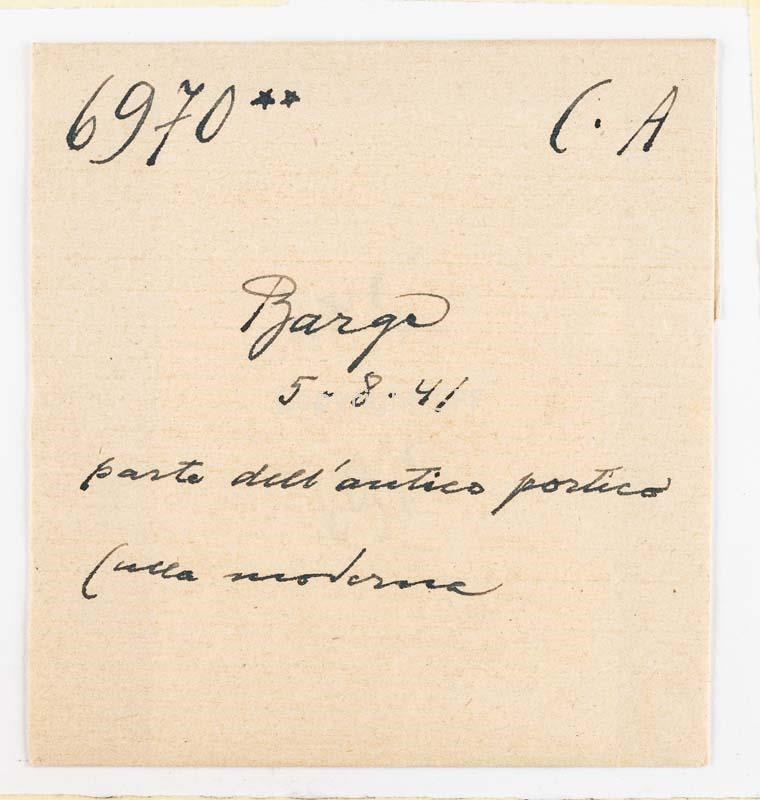 6970** C. A
Barge
5-8-41
parte dell'antico portico
Culla moderna